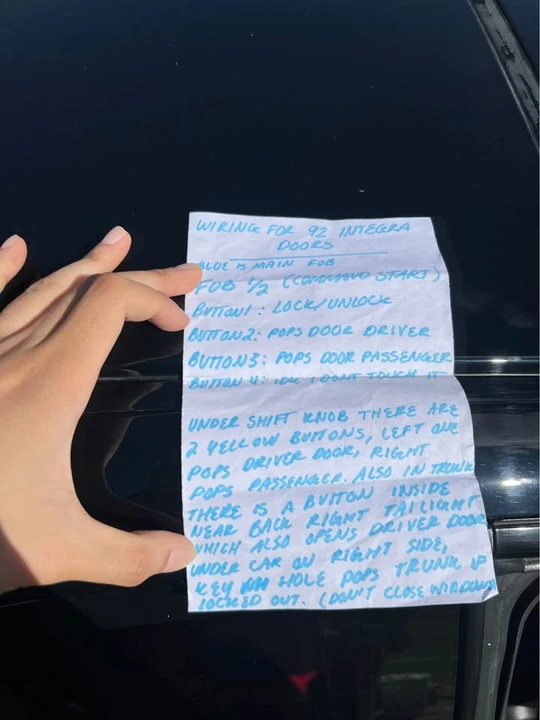 WIRING FOR 92 INTEGRA
DOORS
BLUE IS MAIN FOB
FOB 1/2 (COMMAND START)
BUTTON1: LOCK/UNLOCK
BUTTON2: POPS DOOR DRIVER
BUTTON3: POPS DOOR PASSENGER
BUTTON 4: IDK I DONT TOUCH IT
UNDER SHIFT KNOB THERE ARE
2 YELLOW BUTTONS, LEFT ONE
POPS DRIVER DOOR, RIGHT
POPS PASSENGER. ALSO IN TRUNK
THERE IS A BUTTON INSIDE
NEAR BACK RIGHT TAILIGHT
WHICH ALSO OPENS DRIVER DOOR
UNDER CAR ON RIGHT SIDE,
KEY HOLE POPS TRUNK IF
LOCKED OUT. (DON'T CLOSE WINDOWS)